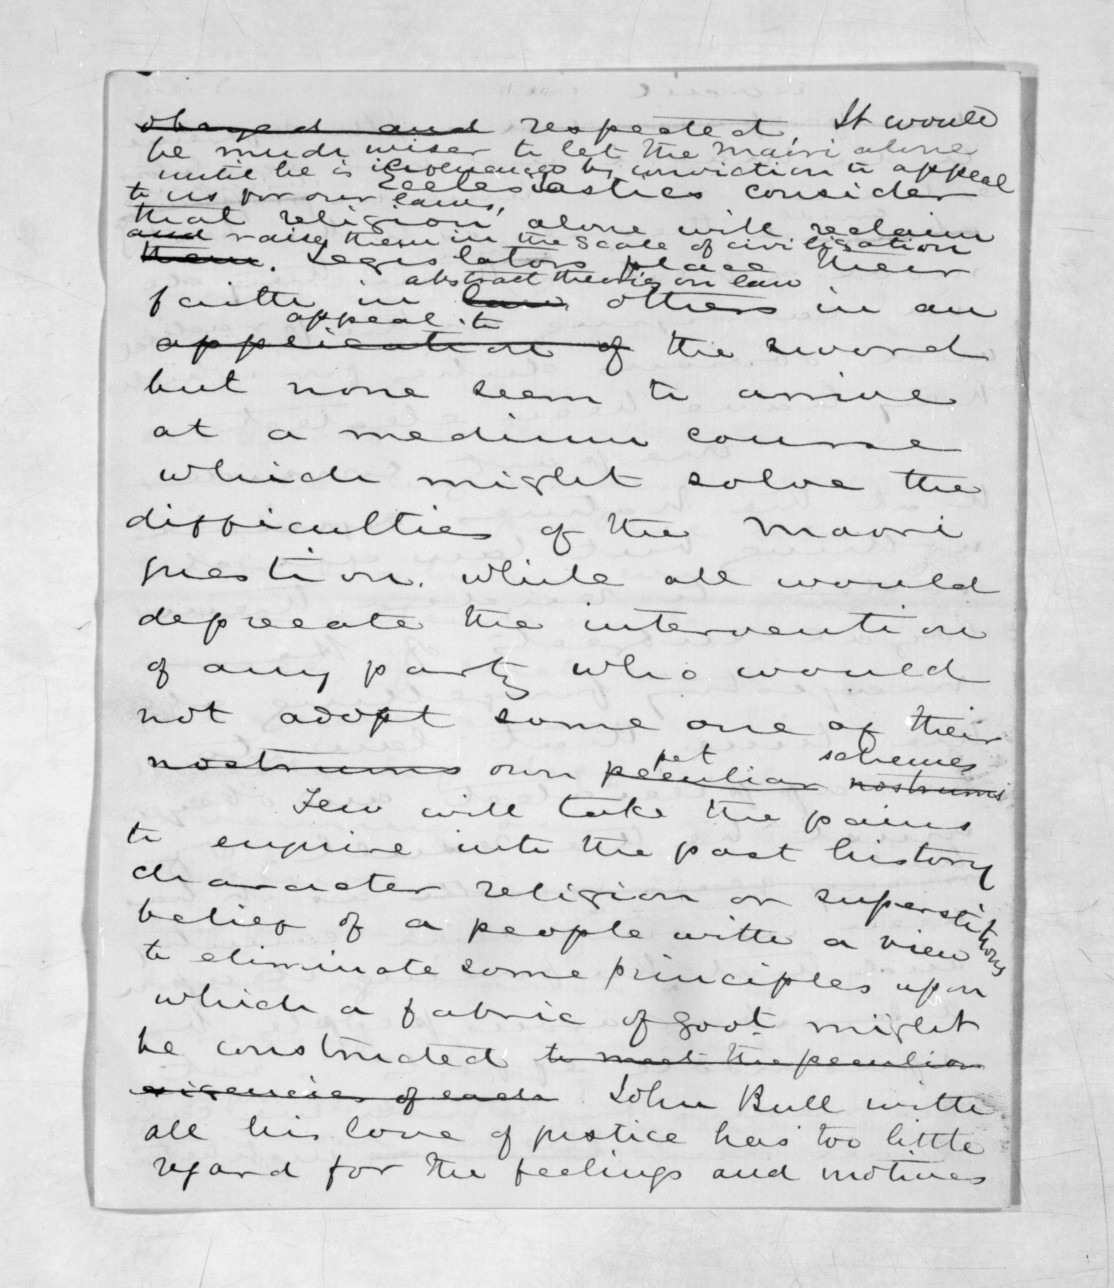 obeyed and respected. It would
be much wiser to let the Maori alone
until he is by conviction to appeal
to us for our laws,
Ecclesiastics consider
that religion alone will reclaim
and raise them in the scale of civilization
them. Legislators place their
abstract theories on law
faith in law others in an
appeal to
application of the sword
but none seem to arrive
at a medium course
which might solve the
difficulties of the Maori
question. while all would
deprecate the intervention
of any party who would
not adopt some one of their
pet schemes
nostrums own peculiar nostrums
Few will take the pains
to enquire into the past history
character religion or superstitious
belief of a people with a view
to eliminate some principles upon
which a fabric of govt. might
be constructed to meet the peculiar
exigencies of each. John Bull with
all his love of justice has too little
regard for the feelings and motives